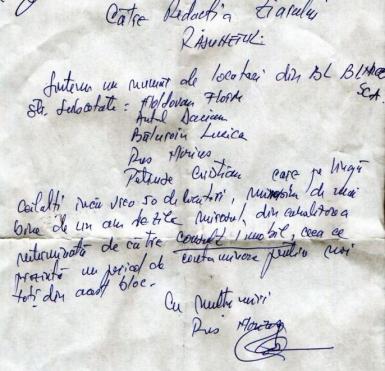 Către Redactia Ziarului
RĂSUNETUL
Suntem un număr de locatari din BL
SCA
Str. : Moldovan Florin
Antal Darian
Lucica
Rus Marius
Petruse Cristian care pe lîngă
ceilalți, încă vreo 50 de locatari, de mai
bine de un an de zile mirosul, din canalizarea
neterminată de către , ceea ce
prezintă un pericol de contaminare pentru noi
toți din acest bloc.
Cu mulțumiri
Rus